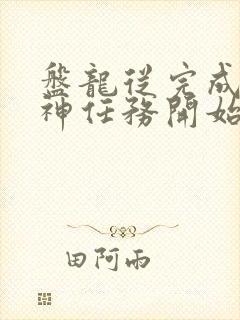 盤龍從完成
神任務開始
田阿雨